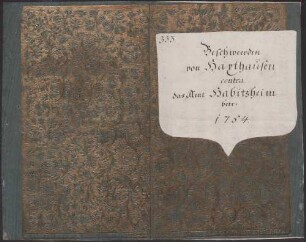 333.
Beschwerden
von Haxthausen
contra
das Amt Habitzheim
betr:
1754.